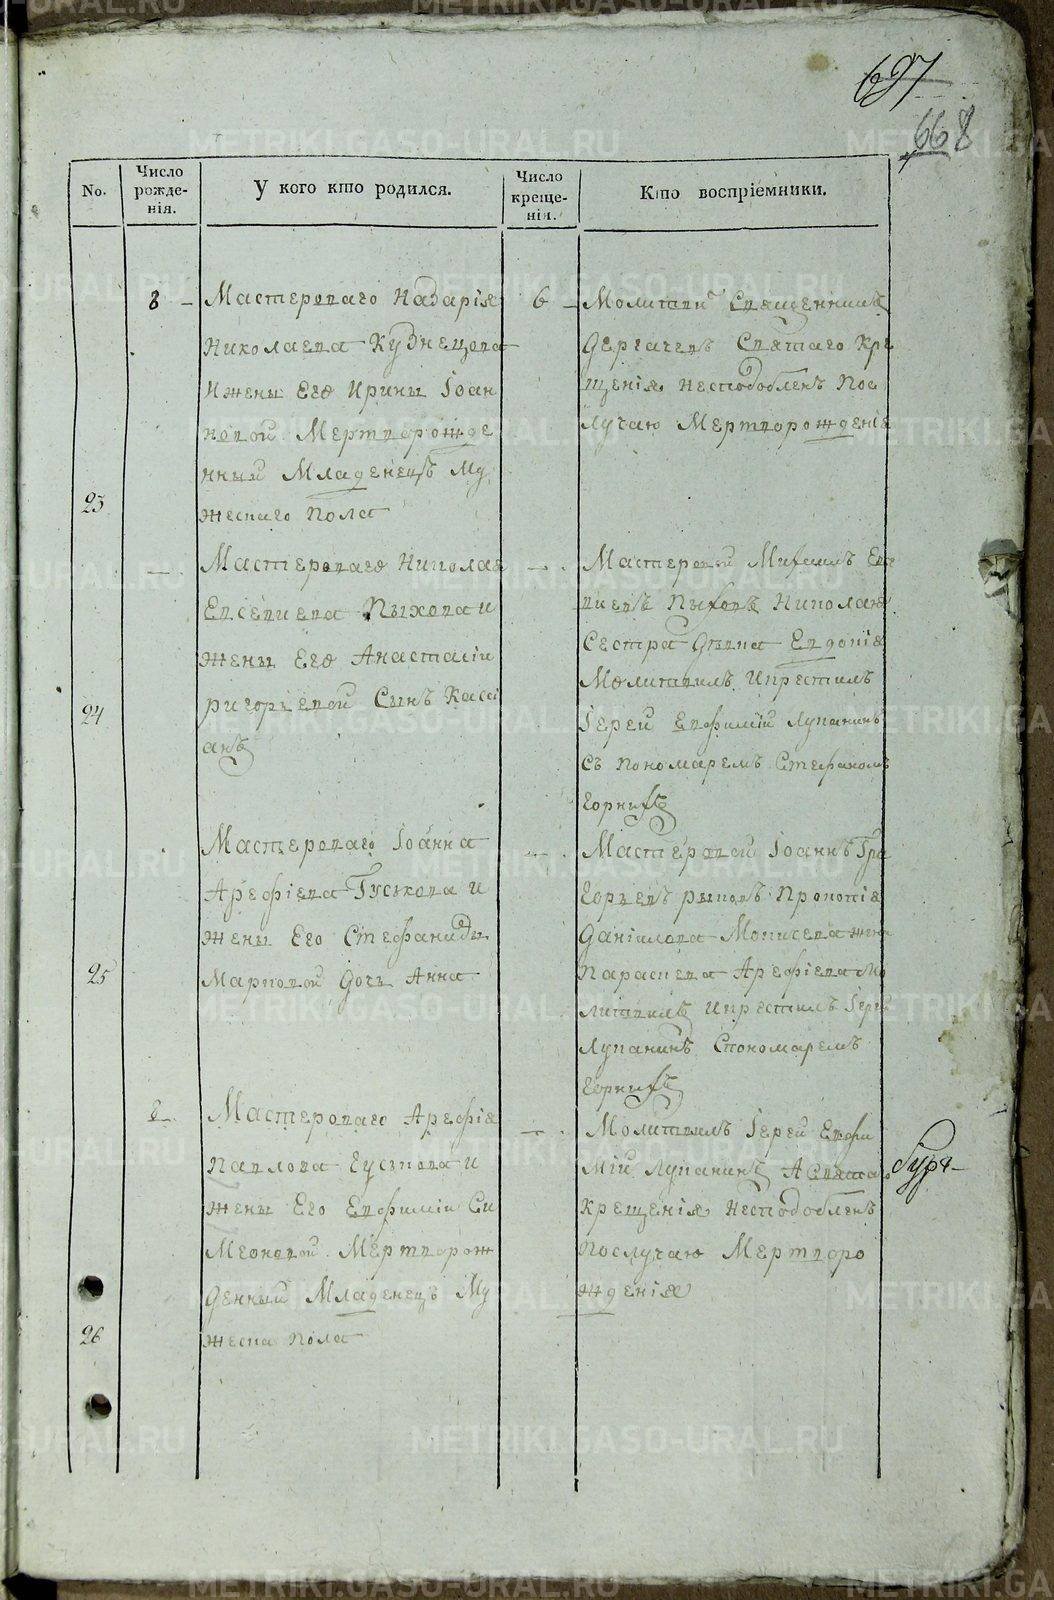 697
668
No.
Число рожденія.
У кого кто родился.
Число крещенія.
Кто воспріемники.
23
8
Мастероваго Назарія
Николаева Кузнецова
Ижены Его Ирины Іоан
новой Мертворожде
нный Младенецъ Му
жескаго Пола
6
Священникъ
Дергачевъ Святаго Кре
щенія Несподобленъ По
лучаю Мертворожденія
24
Мастероваго Николая
Евсевиева Пыхова и
жены Его Анастасіи
ригорьевой Сынъ Касси
анъ
Мастеровой Михаилъ Евсе
виевъ Пыховъ Николаю
Сестра Девка Евдокія
Молитвилъ Икрестилъ
Іерей Евфимій Лупанинъ
Съ Пономаремъ Стефаномъ
Горныхъ
25
Мастероваго Іоанна
Арефіева Гуськова и
жены Его Стефаниды
Марковой Дочь Анна
Мастеровой Іоаннъ Гри
горьевъ Прокопія
Даніилова Мокиева жена
Параскева Арефіева Мо
литвилъ Икрестилъ Іерей
Лупанинъ Спономаремъ
Горныхъ
26
8
Мастероваго Арефія
Павлова Гускова и
жены Его Евфиміи Си
меоновой Мертворож
денный Младенецъ Му
жеска Пола
Молитвилъ Іерей Евфи
мій Лупанинъ А Святаго
Крещенія Несподобленъ
Послучаю Мертворо
жденія
METRIKI.GASO-URAL.RU